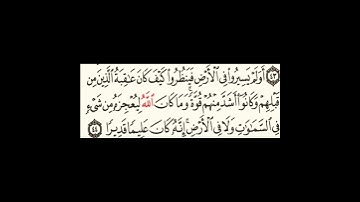 ﴿٤٣﴾ أَوَلَمْ يَسِيرُوا۟ فِى ٱلْأَرْضِ فَيَنظُرُوا۟ كَيْفَ كَانَ عَـٰقِبَةُ ٱلَّذِينَ مِن
قَبْلِهِمْ وَكَانُوٓا۟ أَشَدَّ مِنْهُمْ قُوَّةً ۚ وَمَا كَانَ ٱللَّهُ لِيُعْجِزَهُۥ مِن شَىْءٍ
فِى ٱلسَّمَـٰوَٰتِ وَلَا فِى ٱلْأَرْضِ ۚ إِنَّهُۥ كَانَ عَلِيمًا قَدِيرًا ﴿٤٤﴾